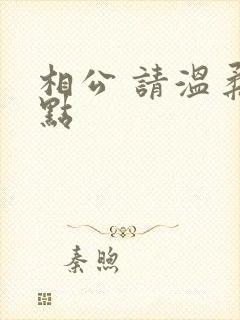 相公 請溫柔
點
秦煦